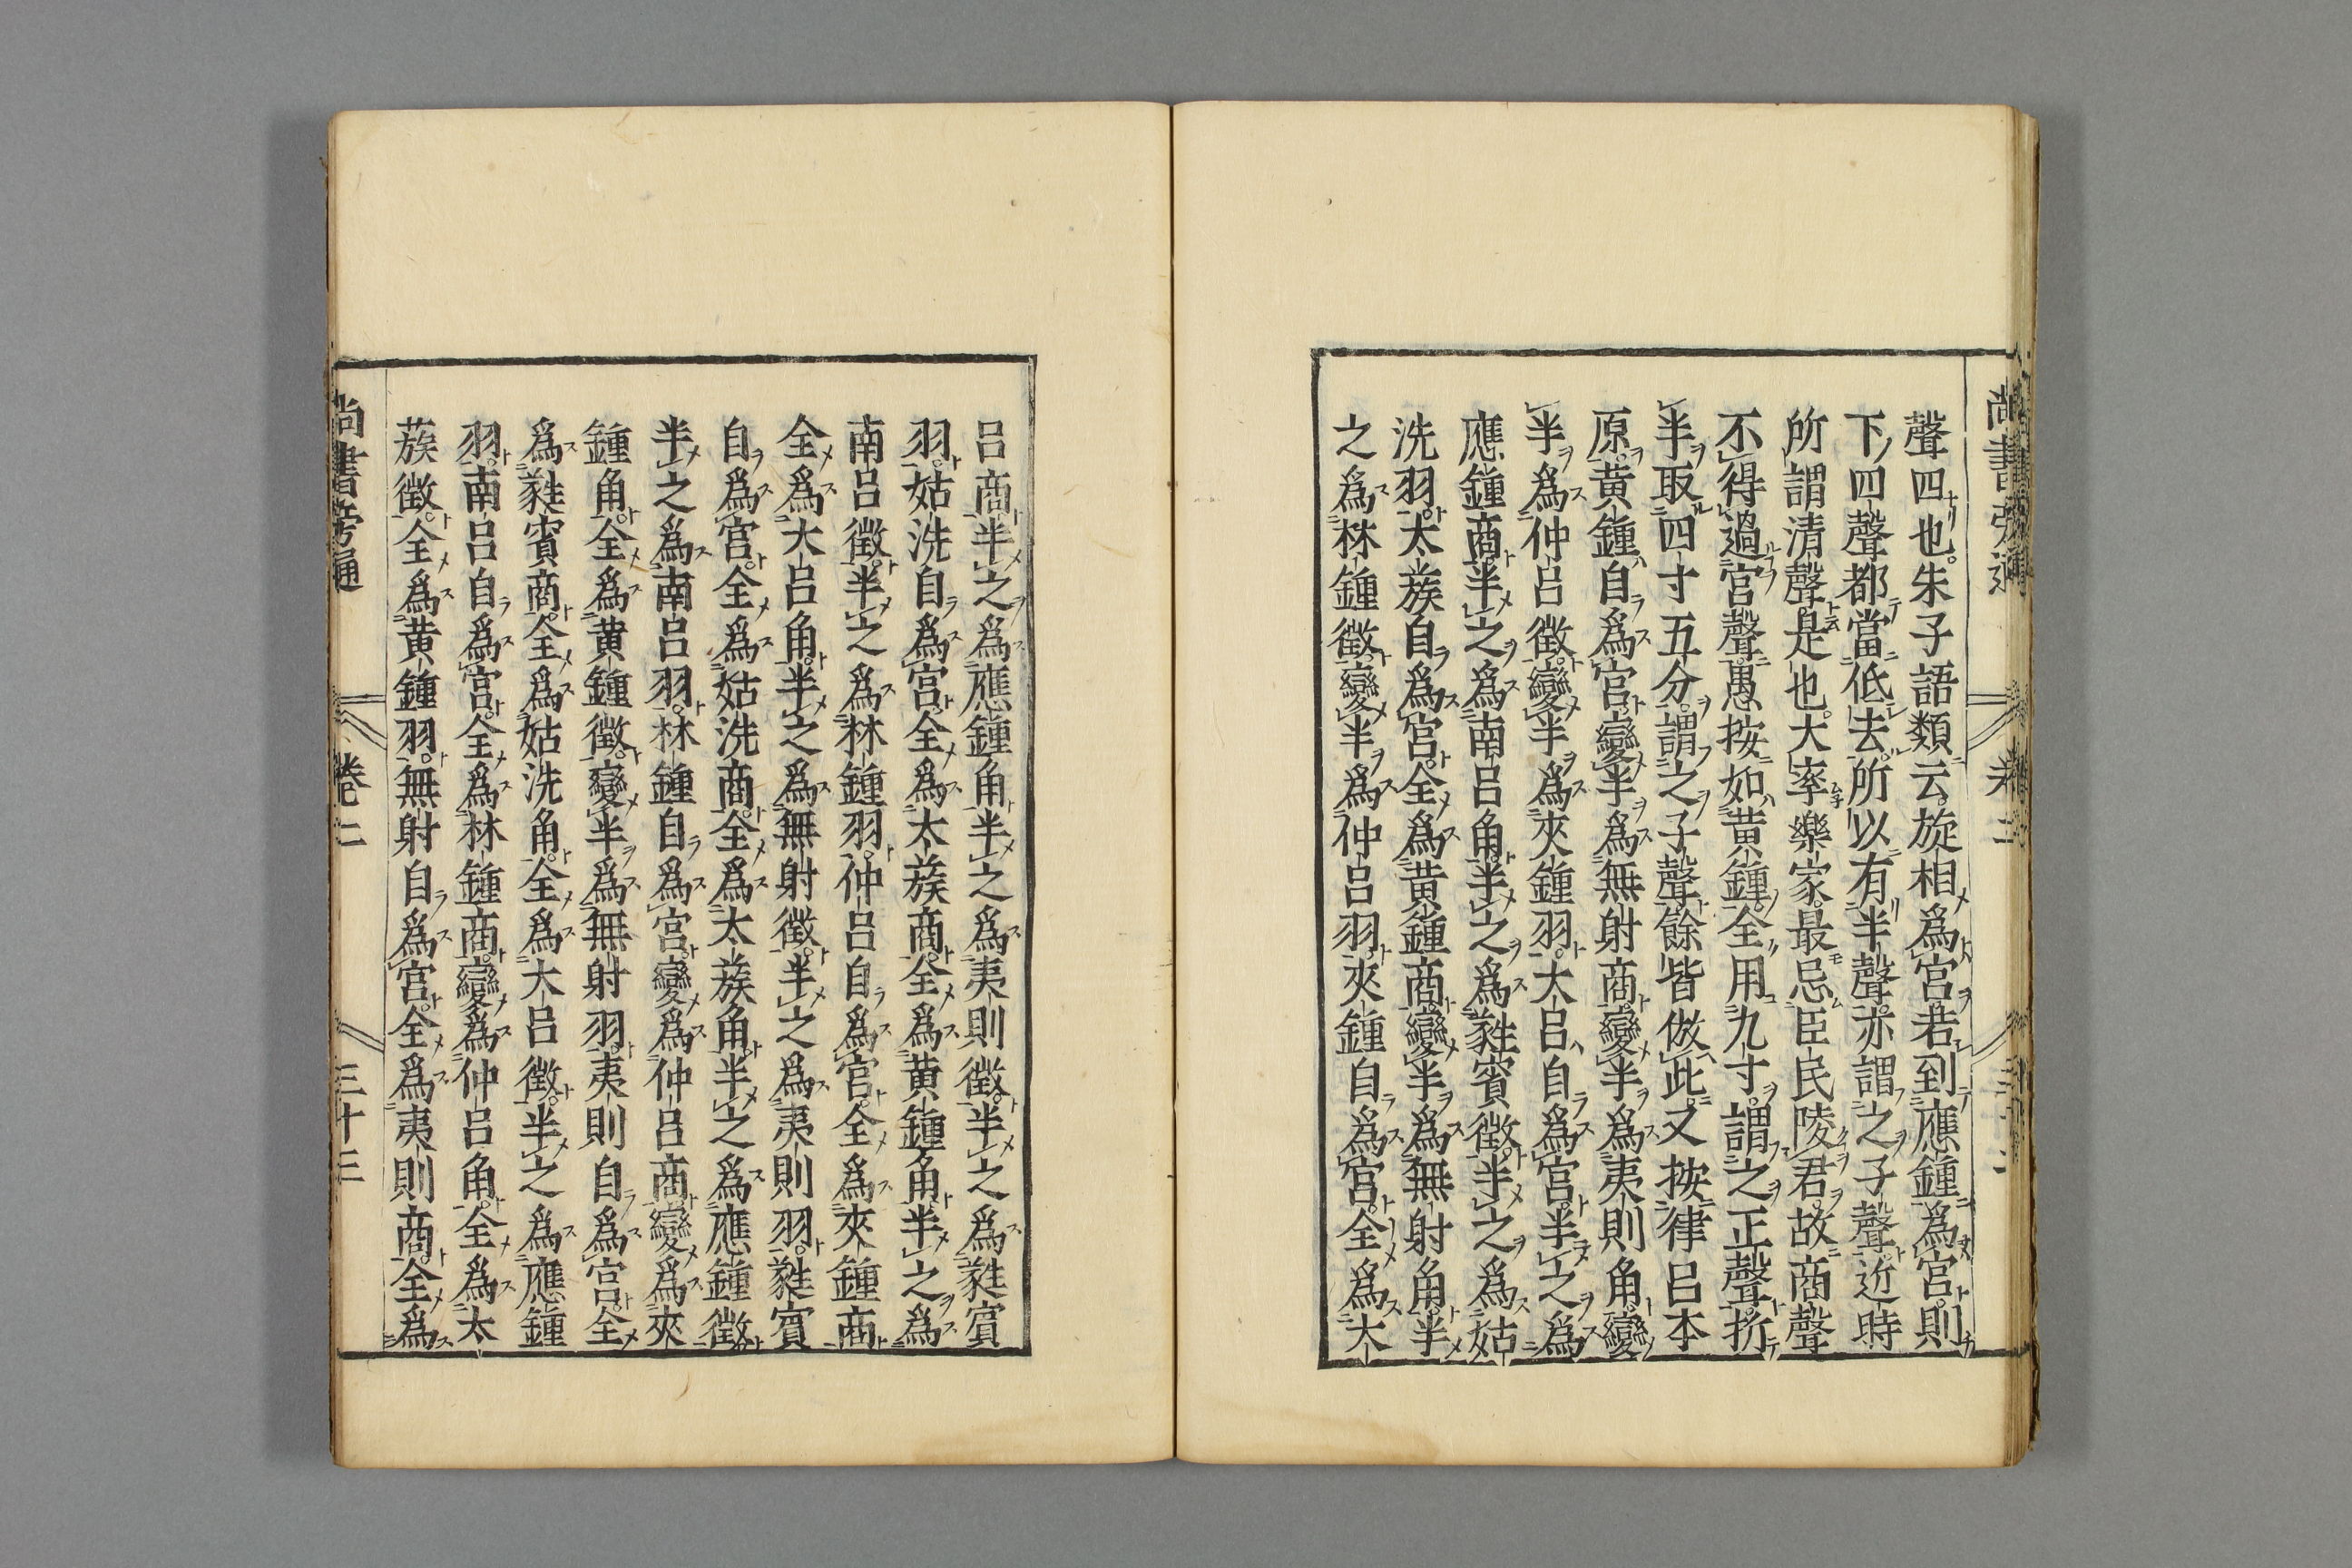 聲四也朱子語類云旋相爲宮若到應鍾爲宮則
下四聲都當低去所以有半聲亦謂之子聲近時
所謂清聲是也大率樂家最忌臣民陵君故商聲
不得過宮聲愚按如黄鍾全用九寸謂之正聲折
半取四寸五分謂之子聲餘皆倣此又按律呂本
原黄鍾自爲宮變半爲無射商變半爲夷則角變
半爲仲呂徵變半爲夾鍾羽大呂自爲宮半之爲
應鍾商半之爲南呂角半之爲蕤賓徵半之爲姑
洗羽太蔟自爲宮全爲黄鍾商變半爲無射角半
之爲林鍾徵變半爲仲呂羽夾鍾自爲宮全爲大
呂商半之爲應鍾角半之爲夷則徵半之爲蕤賓
羽姑洗自爲宮全爲太蔟商全爲黄鍾角半之爲
南呂徵半之爲林鍾羽仲呂自爲宮全爲夾鍾商
全爲大呂角半之爲無射徵半之爲夷則羽蕤賓
自爲宮全爲姑洗商全爲太蔟角半之爲應鍾徵
半之爲南呂羽林鍾自爲宮變爲仲呂商變爲夾
鍾角全爲黄鍾徵變半爲無射羽夷則自爲宮全
爲蕤賓商全爲姑洗角全爲大呂徵半之爲應鍾
羽南呂自爲宮全爲林鍾商變爲仲呂角全爲太
蔟徵全爲黄鍾羽無射自爲宮全爲夷則商全爲
尚書旁通 卷二 三十三